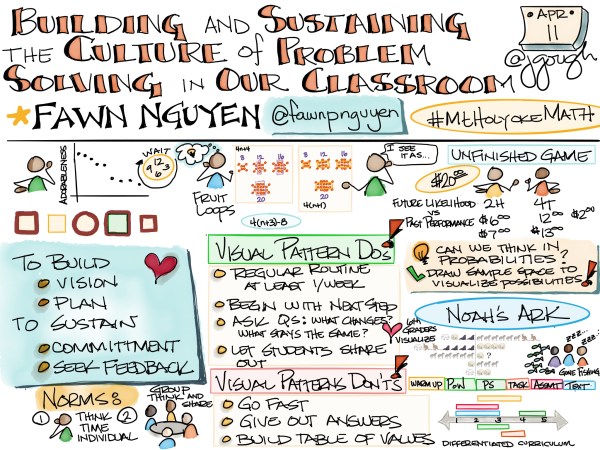 Building and Sustaining
the Culture of Problem
Solving in Our Classroom
APR
11
@jgough
FAWN NGUYEN
@fawnpnguyen
#MtHolyokeMath
ADORABLENESS
WAIT
12
9 3
6
Fruit
Loops
4n+4
8 12 16
20
8 12 16
20
4(n+1)
4(n+3)-8
I SEE
IT AS...
UNFINISHED GAME
$20.00
FUTURE LIKELIHOOD
VS
PAST PERFORMANCE
2H 4T
$6.00 12.00 $2.00
$7.00 $13.00
CAN WE THINK IN
PROBABILITIES?
DRAW SAMPLE SPACE TO
VISUALIZE POSSIBILITIES
TO BUILD
VISION
PLAN
TO SUSTAIN
COMMITTMENT
SEEK FEEDBACK
VISUAL PATTERN DOS
REGULAR ROUTINE
AT LEAST 1/WEEK
BEGIN WITH NEXT STEP
ASK QS: WHAT CHANGES?
WHAT STAYS THE SAME?
LET STUDENTS SHARE
OUT
VISUAL PATTERNS DON'TS
GO FAST
GIVE OUT ANSWERS
BUILD TABLE OF VALUES
NOAH'S ARK
6th
GRADERS
VISUALIZE
?
ZZZ...
ZZZ...
GONE FISHING
WARM UP POW PS TASK ASSMT TEXT
1 2 3 4 5
DIFFERENTIATED CURRICULUM
NORMS:
1 THINK
TIME
INDIVIDUAL
2 GROUP
THINK AND
SHARE